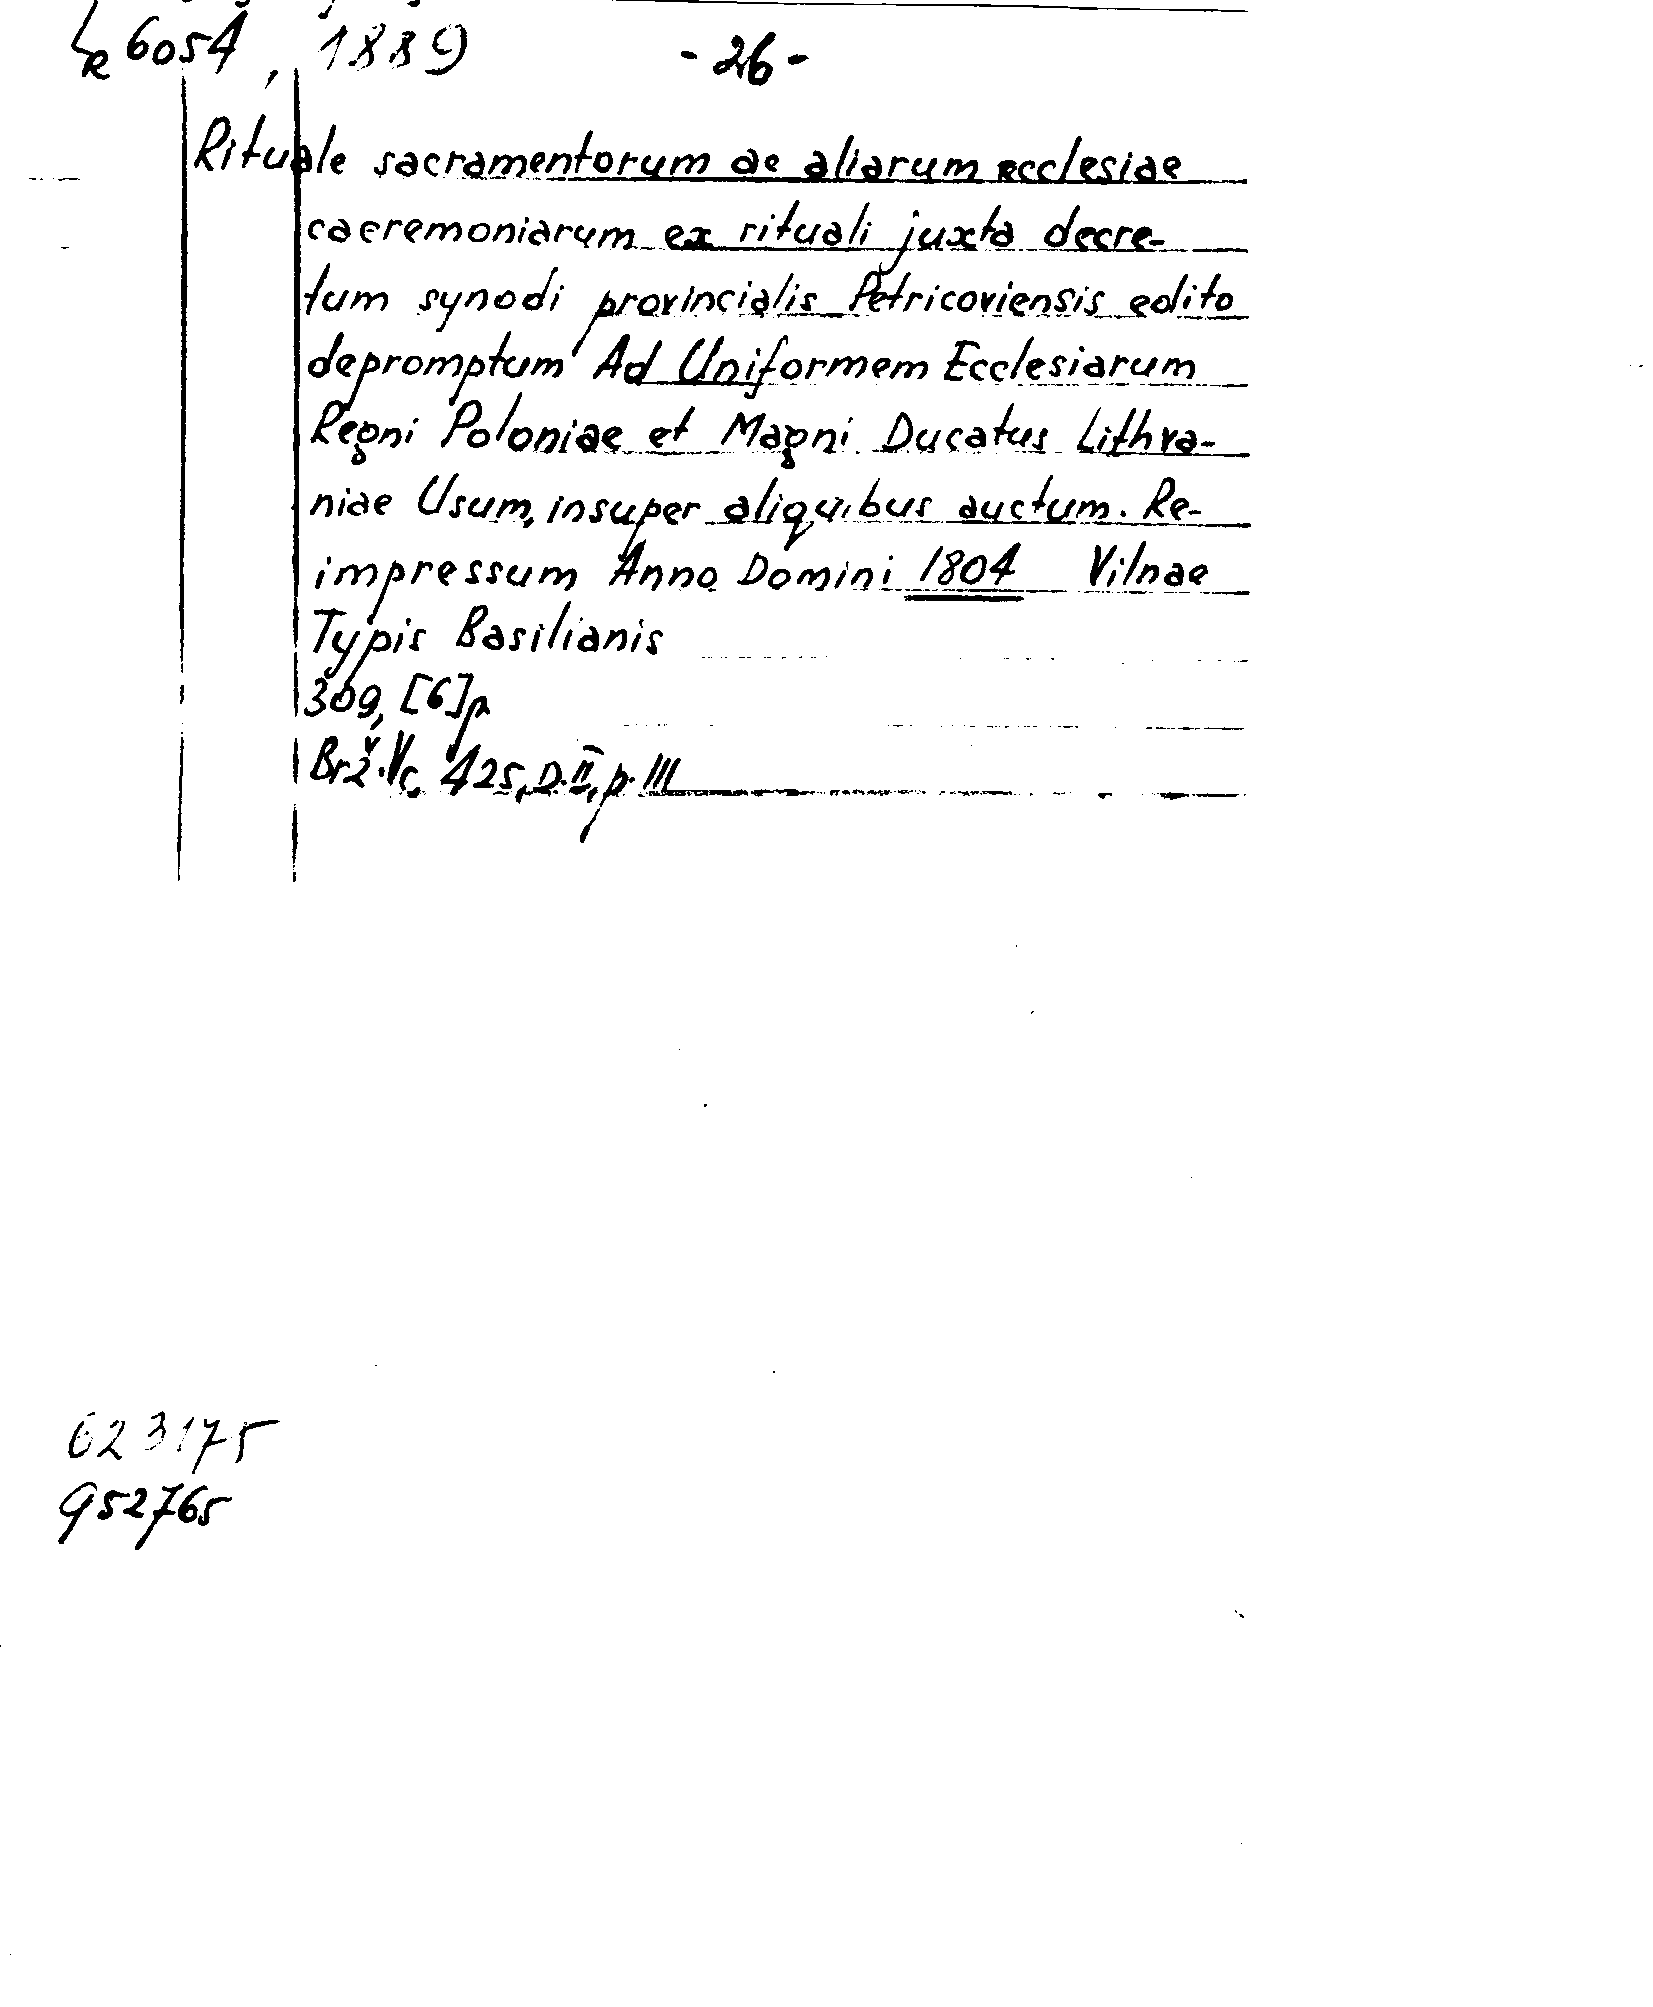 Lk 6054, 1889 - 26 -
Rituale sacramentorum ac aliarum ecclesiae
caeremoniarum ex rituali juxta decre-
tum synodi provincialis Petricoviensis edito
depromptum Ad Uniformem Ecclesiarum
Regni Poloniae et Magni Ducatus Lithva-
niae Usum, insuper aliquibus auctum. Re-
impressum Anno Domini 1804 Vilnae
Typis Basilianis
309, [6]p
Brž. Vc, 425, D.II, p. III
623175
952765